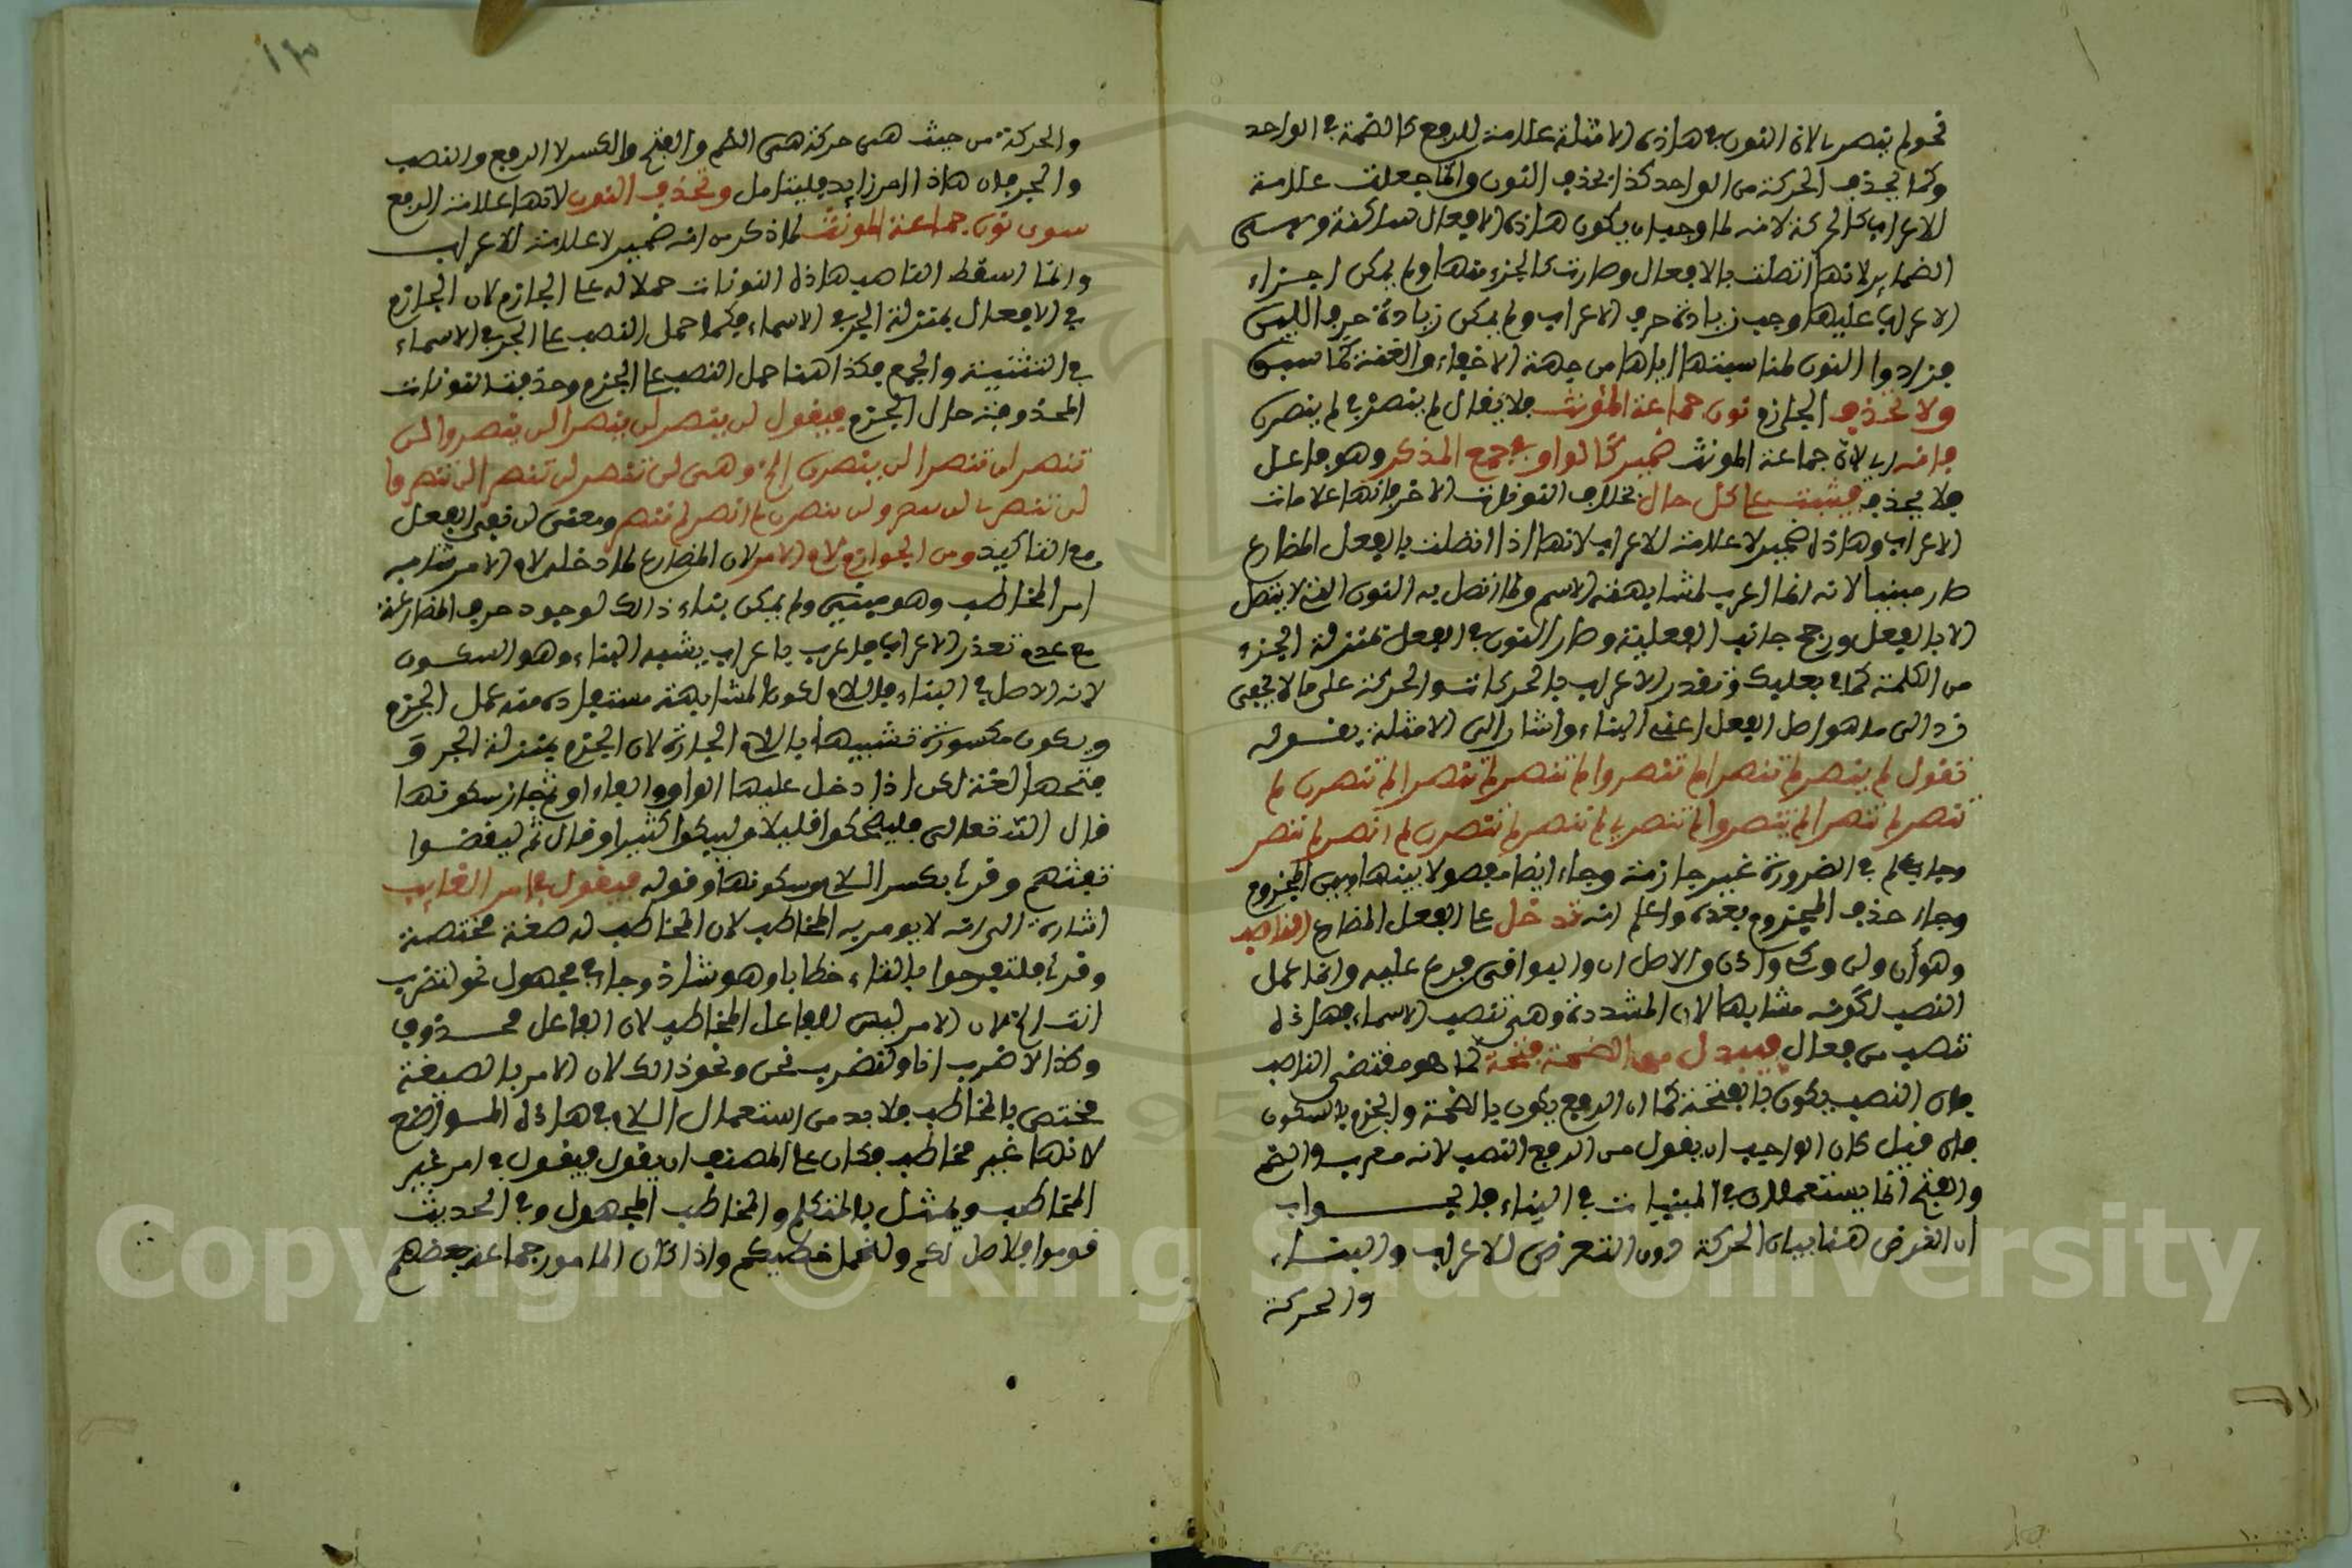 نحو لم ينصرا لان النون في هاذه الامثلة علامة للرفع كالضمة في الواحد
وكما يحذف الحركة من الواحد كذا يحذف النون وانما جعلت علامة
للاعراب كالحركة لانه لما وجب ان يكون هاذه الافعال ساكنة وهي
الضماير لانها اتصلت بالافعال وصارت كالجزء منها ولم يمكن اجراء
الاعراب عليها وجب زيادة حرف الاعراب ولم يمكن زيادة حرف اللين
فزادوا النون لمناسبتها اياها من جهة الاخفاء والغنة كما سبق
ولا تحذف الجازم نون جماعة المؤنث فلا يقال لم ينصر في لم ينصرن
فانه اي لان جماعة المونث ضمير كالواو في جمع المذكر وهو فاعل
فلا يحذف فيثبت على كل حال بخلاف النونات الاخر فانها علامات
الاعراب وهاذه ضمير لا علامة للاعراب لانها اذا اتصلت بالفعل المضارع
صار مبنيا لانه انما اعرب لمشابهته الاسم ولما اتصل به النون التي لا يتصل
الا بالفعل ورجح جانب الفعلية وصار النون في الفعل بمنزلة الجزء
من الكلمة كما في بعلبك وتعذر الاعراب بالحركات والحركة على ما لا يخفى
رد الى ما هو اصل الفعل اعني البناء واشار الى الامثلة بقوله
تقول لم ينصر لم ينصرا لم ينصروا لم تنصر لم تنصرا لم ينصرن لم
تنصر لم تنصرا لم تنصروا لم تنصري لم تنصرا لم تنصرن لم انصر لم ننصر
وجاء لم في الضرورة غير جازمة وجاء ايضا مفصولا بينها وبين المجزوم
وجاء حذف المجزوم بعده واعلم انه تدخل على الفعل المضارع الناصب
وهو أن ولن وكي واذن والاصل ان والبواقي فرع عليه وانما عمل
النصب لكونه مشابها لان المشددة وهي تنصب الاسماء فهاذه
تنصب من فعال فيبدل من الضمة فتحة كما هو مقتضى الناصب
فان النصب يكون بالفتحة كما ان الرفع يكون بالضمة والجزم بالسكون
فان قيل كان الواجب ان يقول من الرفع النصب لانه معرب والضم
والفتح انما يستعملان في المبنيات في البناء فالجواب
ان الغرض هنا بيان الحركة دون التعرض للاعراب والبناء
والحركة
والحركة من حيث هي حركة هي الضم والفتح والكسر لا الرفع والنصب
والجر فان هاذا امر زايد فليتامل وتحذف النون لانها علامة الرفع
سوى نون جماعة المونث لما ذكر من انه ضمير لا علامة للاعراب
وانما اسقط الناصب هاذه النونات حملا له على الجازم لان الجازم
في الافعال بمنزلة الجر في الاسماء فكما حمل النصب على الجر في الاسماء
في التثنية والجمع فكذا هنا حمل النصب على الجزم وحذفت النونات
المحذوفة حال الجزم فيقول لن ينصر لن ينصرا لن ينصروا لن
تنصر لن تنصرا لن ينصرن الخ وهي لن تنصر لن تنصرا لن تنصروا
لن تنصري لن تنصرا لن تنصرن لن انصر لن ننصر ومعنى لن نفي الفعل
مع التاكيد ومن الجوازم لام الامر لان المضارع لما دخله لام الامر شابه
امر المخاطب وهو مبني ولم يمكن بناء ذالك لوجود حرف المضارعة
مع عدم تعذر الاعراب فاعرب باعراب يشبه البناء وهو السكون
لانه الاصل في البناء فاللام لكون المشابهة مستفادة منه عمل الجزم
ويكون مكسورة تشبيها باللام الجارة لان الجزم بمنزلة الجر و
فتحها لغة لكن اذا دخل عليها الواو والفاء او ثم جاز سكونها
قال الله تعالى فليضحكوا قليلا وليبكوا كثيرا وقال ثم ليقضوا
تفثهم وقرئ بكسر اللام وسكونها وقوله فيقول في امر الغايب
اشارة الى انه لا يومر به المخاطب لان المخاطب له صيغة مختصة
وقرئ فلتفرحوا بالتاء خطابا وهو شاذ وجاء في مجهول نحو لتضرب
انت الخ لان الامر ليس للفاعل المخاطب لان الفاعل محذوف
وكذا لاضرب انا ولنضرب نحن ونحو ذالك لان الامر بالصيغة
مختص بالمخاطب فلا بد من استعمال اللام في هاذه المواضع
لانها غير مخاطب فكان على المصنف ان يقول فيقول في امر غير
المخاطب ويمثل بالمتكلم والمخاطب المجهول وفي الحديث
قوموا فلاصل لكم ولنحمل خطيكم واذا كان المامور جماعة بعضهم